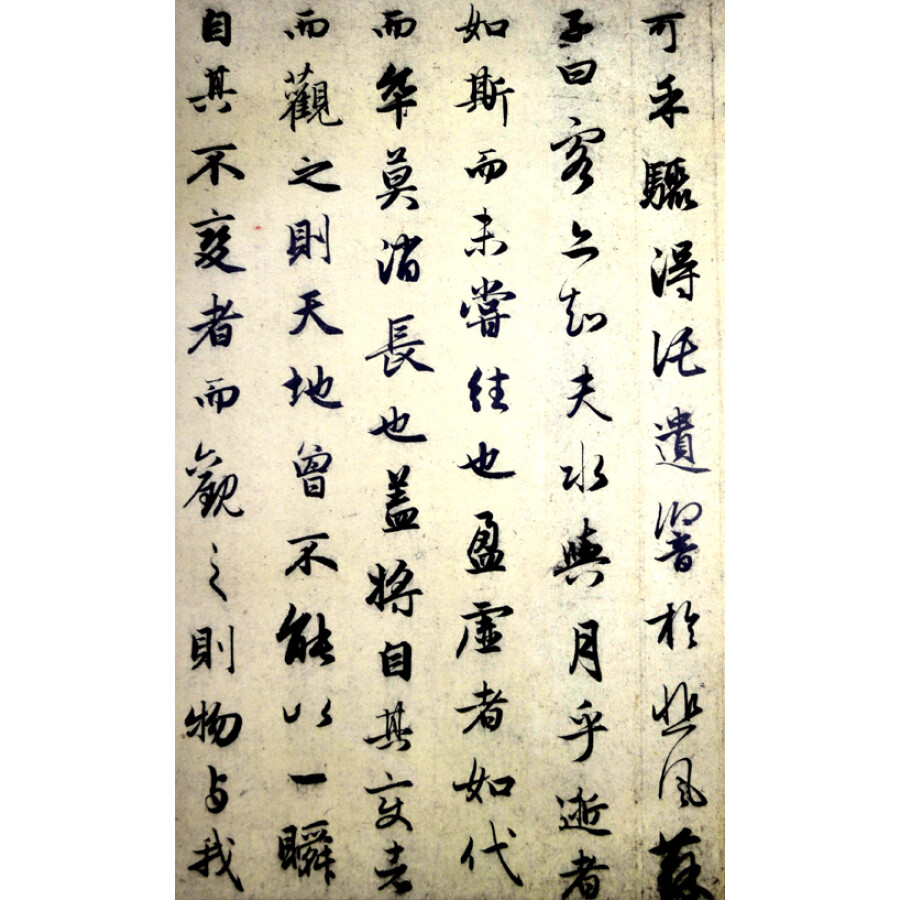 可乎驟得託遺響於悲風蘇
子曰客亦知夫水與月乎逝者
如斯而未嘗往也盈虛者如代
而卒莫消長也蓋將自其變者
而觀之則天地曾不能以一瞬
自其不變者而觀之則物与我